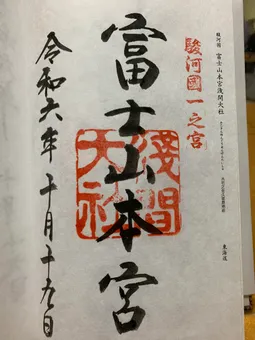 駿河國 富士山本宮浅間大社
東海道
駿河國一之宮
富士山本宮
淺間大社
令和六年十月十九日